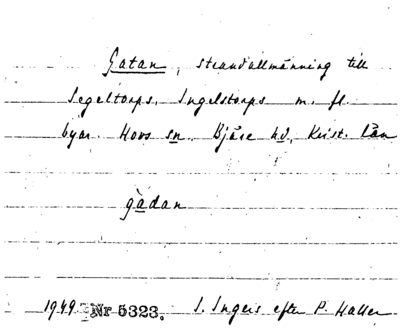 Gatan, strandallmänning till
Segeltorps, Ingelstorps m. fl.
byar. Hovs sn. Bjäre hd, Krist. län
gàdan
1949. Nr 5323. I. Ingers efter P. Haller